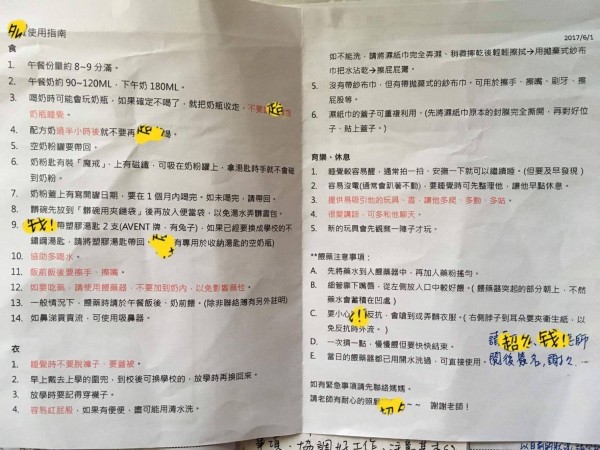 使用指南
食
1. 午餐份量約 8~9 分滿。
2. 午餐奶約 90~120ML，下午奶 180ML。
3. 喝奶時可能會玩奶瓶，如果確定不喝了，就把奶瓶收走。不要
奶瓶睡覺。
4. 配方奶過半小時後就不要再
5. 空奶粉罐要帶回。
6. 奶粉匙有裝「魔戒」，上有磁鐵，可吸在奶粉罐上，拿湯匙時手就不會碰
到奶粉。
7. 奶粉蓋上有寫開罐日期，要在 1 個月內喝完。如未喝完，請帶回。
8. 髒碗先放到「髒碗用夾鏈袋」後再放入便當袋，以免湯水弄髒書包。
9. 帶塑膠湯匙 2 支(AVENT 牌，有兔子)，如果已經要換成學校的不
鏽鋼湯匙，請將塑膠湯匙帶回。 有專用於收納湯匙的空奶瓶)
10. 協助多喝水。
11. 飯前飯後要擦手、擦嘴。
12. 如要吃藥，請使用餵藥器，不要加到奶內，以免影響藥性。
13. 一般情況下，餵藥時請於午餐飯後、奶前餵。(除非聯絡簿有另外註明)
14. 如鼻涕買賣流，可使用吸鼻器。
衣
1. 睡覺時不要脫褲子、要蓋被。
2. 早上戴去上學的圍兜，到校後可換學校的，放學時再換回來。
3. 放學時要記得穿襪子。
4. 容易紅屁股，如果有便便，盡可能用清水洗。
2017/6/1
如不能洗，請將濕紙巾完全弄濕、稍微擰乾後輕輕擦拭→用拋棄式紗布
巾把水沾乾→擦屁屁膏。
5. 沒有帶紗布巾，但有帶拋棄式的紗布巾，可用於擦手、擦嘴、刷牙、擦
屁股等。
6. 濕紙巾的蓋子可重複利用。(先將濕紙巾原本的封膜完全撕開，再對好位
子，貼上蓋子。)
育樂、休息
1. 睡覺較容易醒，通常拍一拍、安撫一下就可以繼續睡。(但要及早發現)
2. 容易沒電(通常會趴著不動)，要睡覺時可先整理他，讓他早點休息。
3. 提供易吸引他的玩具、書，讓他多爬、多動、多站。
4. 很愛講話，可多和他聊天。
5. 新的玩具會先觀察一陣子才玩。
**餵藥注意事項：
A. 先將藥水到人餵藥器中，再加入藥粉搖勻。
B. 細管靠下嘴唇，從左側放入口中較好餵。(餵藥器突起的部分朝上，不然
藥水會蓄積在凹處)
C. 要小心 反抗，會嗆到或弄髒衣服。(右側脖子到耳朵要夾衛生紙，以
免反抗時外流。)
D. 一次擠一點，慢慢餵但要快快結束。
E. 當日的餵藥器都已用開水洗過，可直接使用。
如有緊急事項請先聯絡媽媽。
請老師有耐心的照顧 ~~ 謝謝老師！